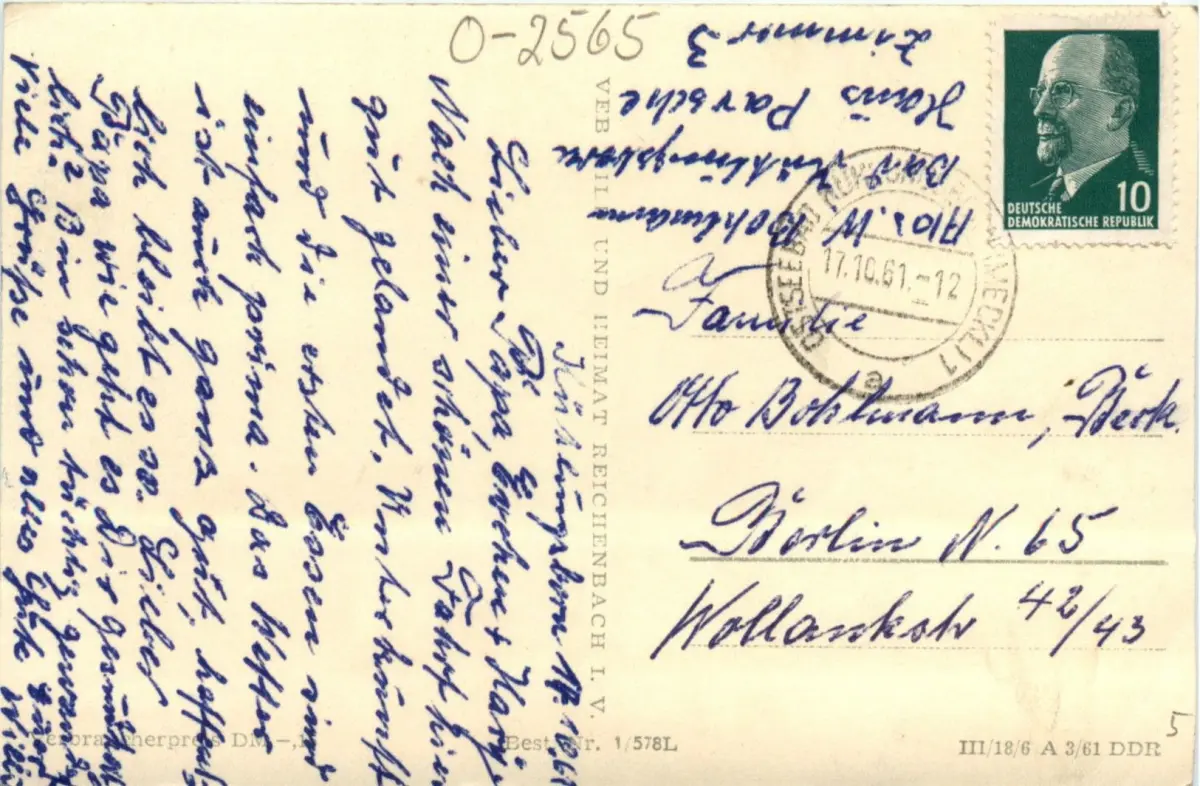 O-2565
Abs. W. Bohlmann
Bad Kühlungsborn
Haus Parsche
Zimmer 3
DEUTSCHE
DEMOKRATISCHE REPUBLIK
10
OSTSEEBAD KÜHLUNGSBORN (MECKL) 1
17.10.61.-12
e
Familie
Otto Bohlmann, Berk.
Berlin N. 65
Wollankstr 42/43
Kühlungsborn 17. 1961
Lieber Papa, Evchen + Harry.
Nach einer schönen Fahrt hier
gut gelandet. Unterkunft
und die ersten Essen sind
einfach prima. Das Wetter
ist auch ganz gut, hoffent-
lich bleibt es so. Lieber
Papa wie geht es Dir gesundheit-
lich? Bin schon tüchtig
Viele Grüße und alles Gute Euer Willi
VEB BILD UND HEIMAT REICHENBACH I. V.
Verbraucherpreis DM -,1
Best. Nr. 1/578L
III/18/6 A 3/61 DDR
5